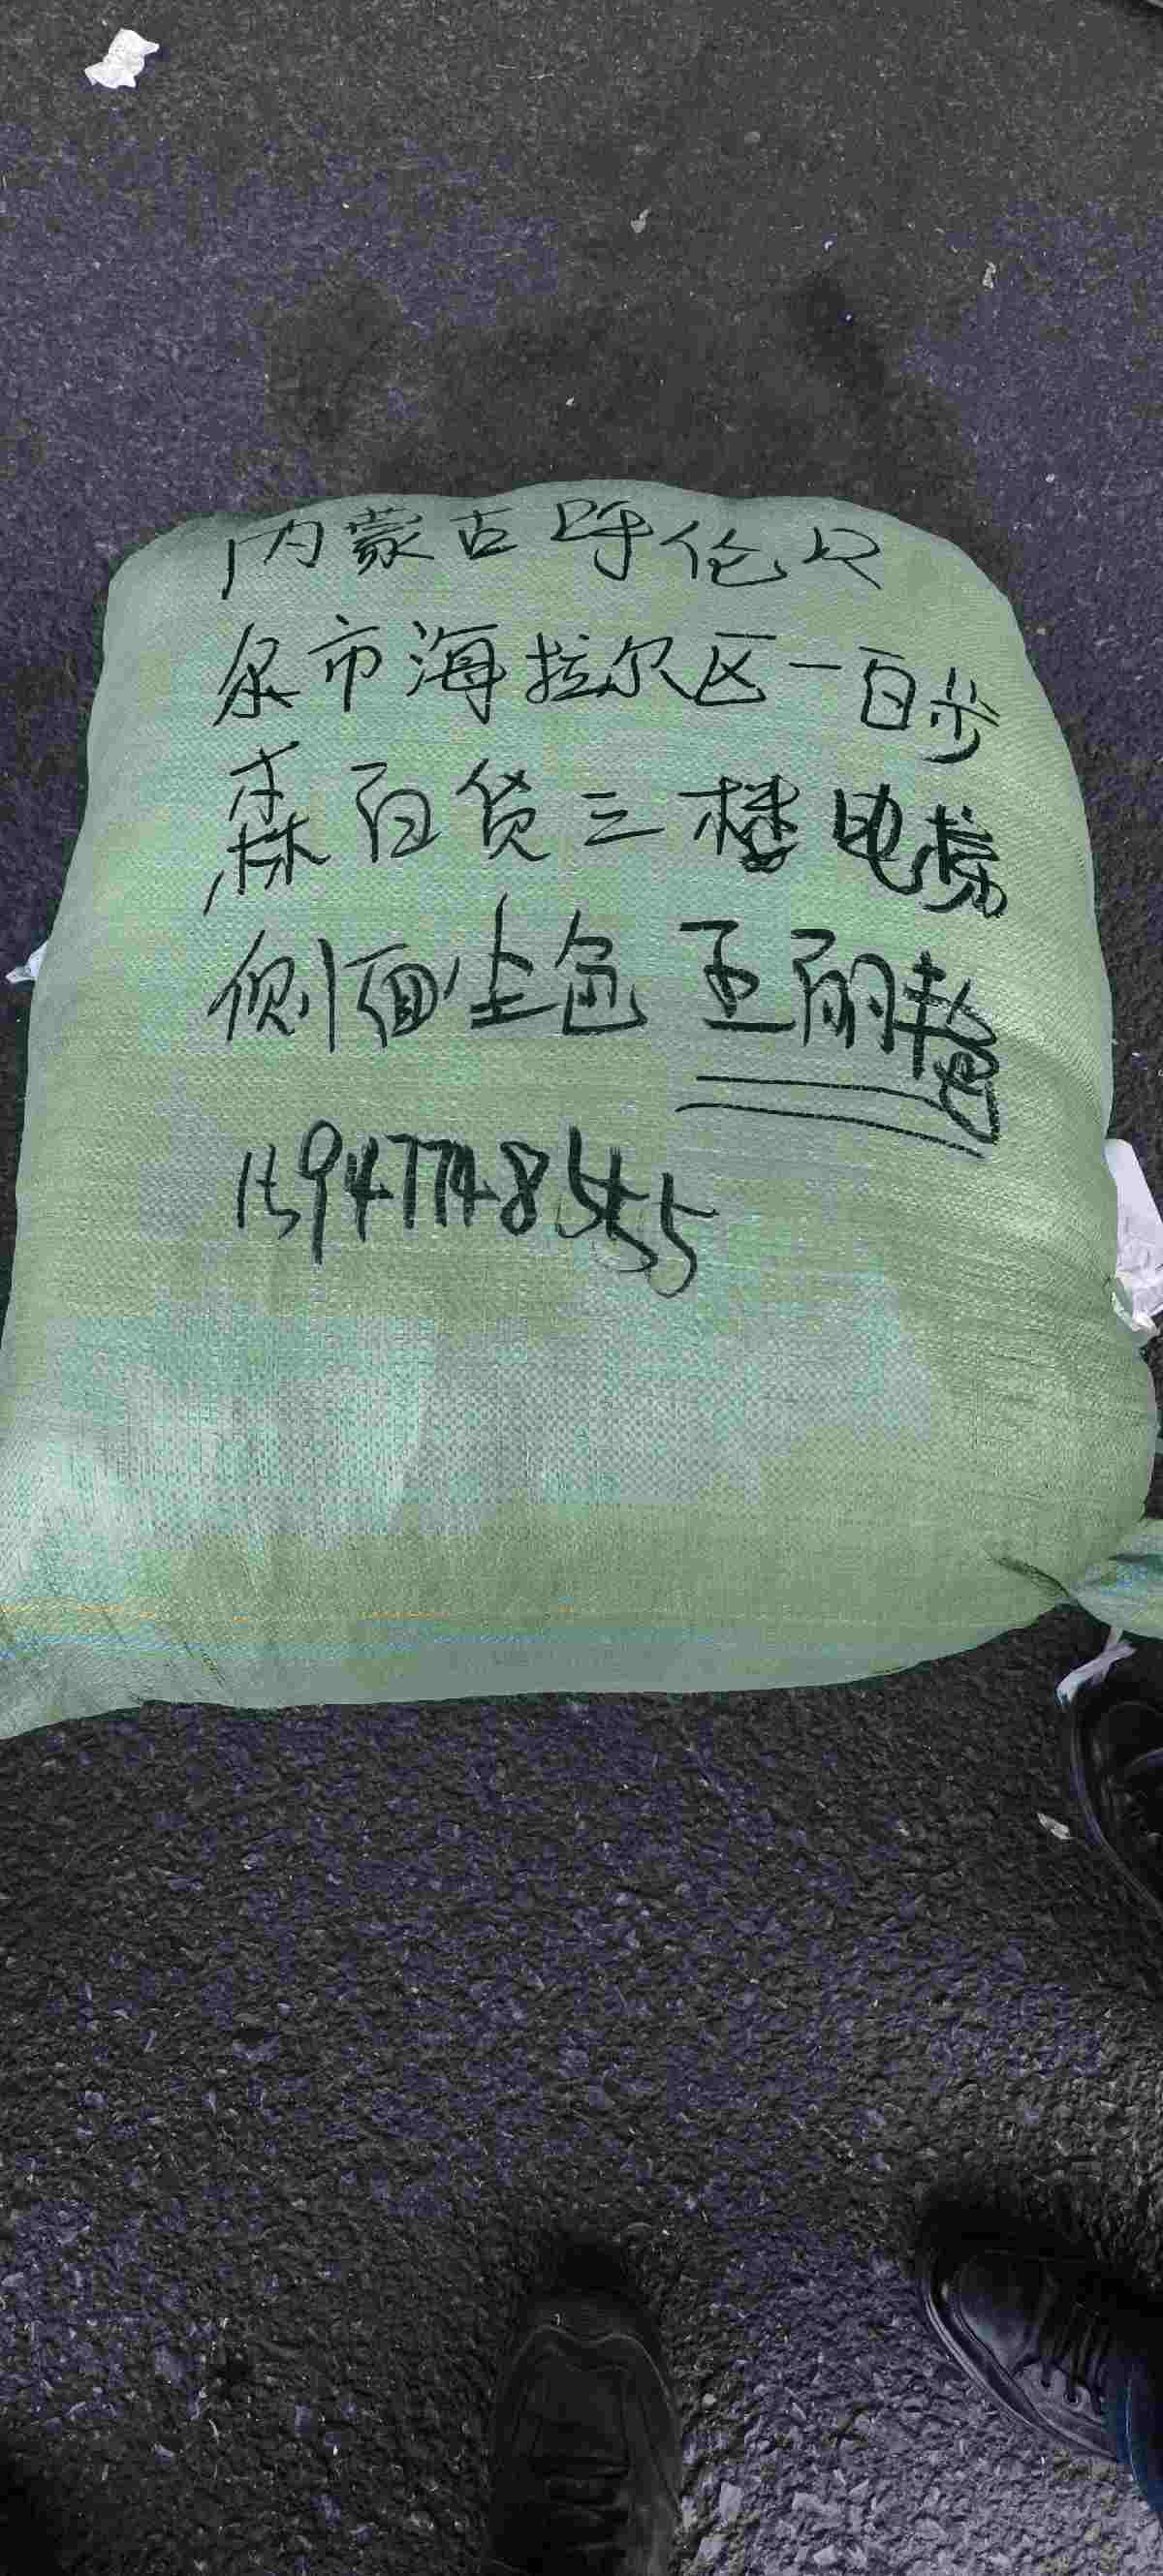 内蒙古呼伦贝
尔市海拉尔区一百步
森百货三楼电梯
侧面尘色 王丽艳
15947748555